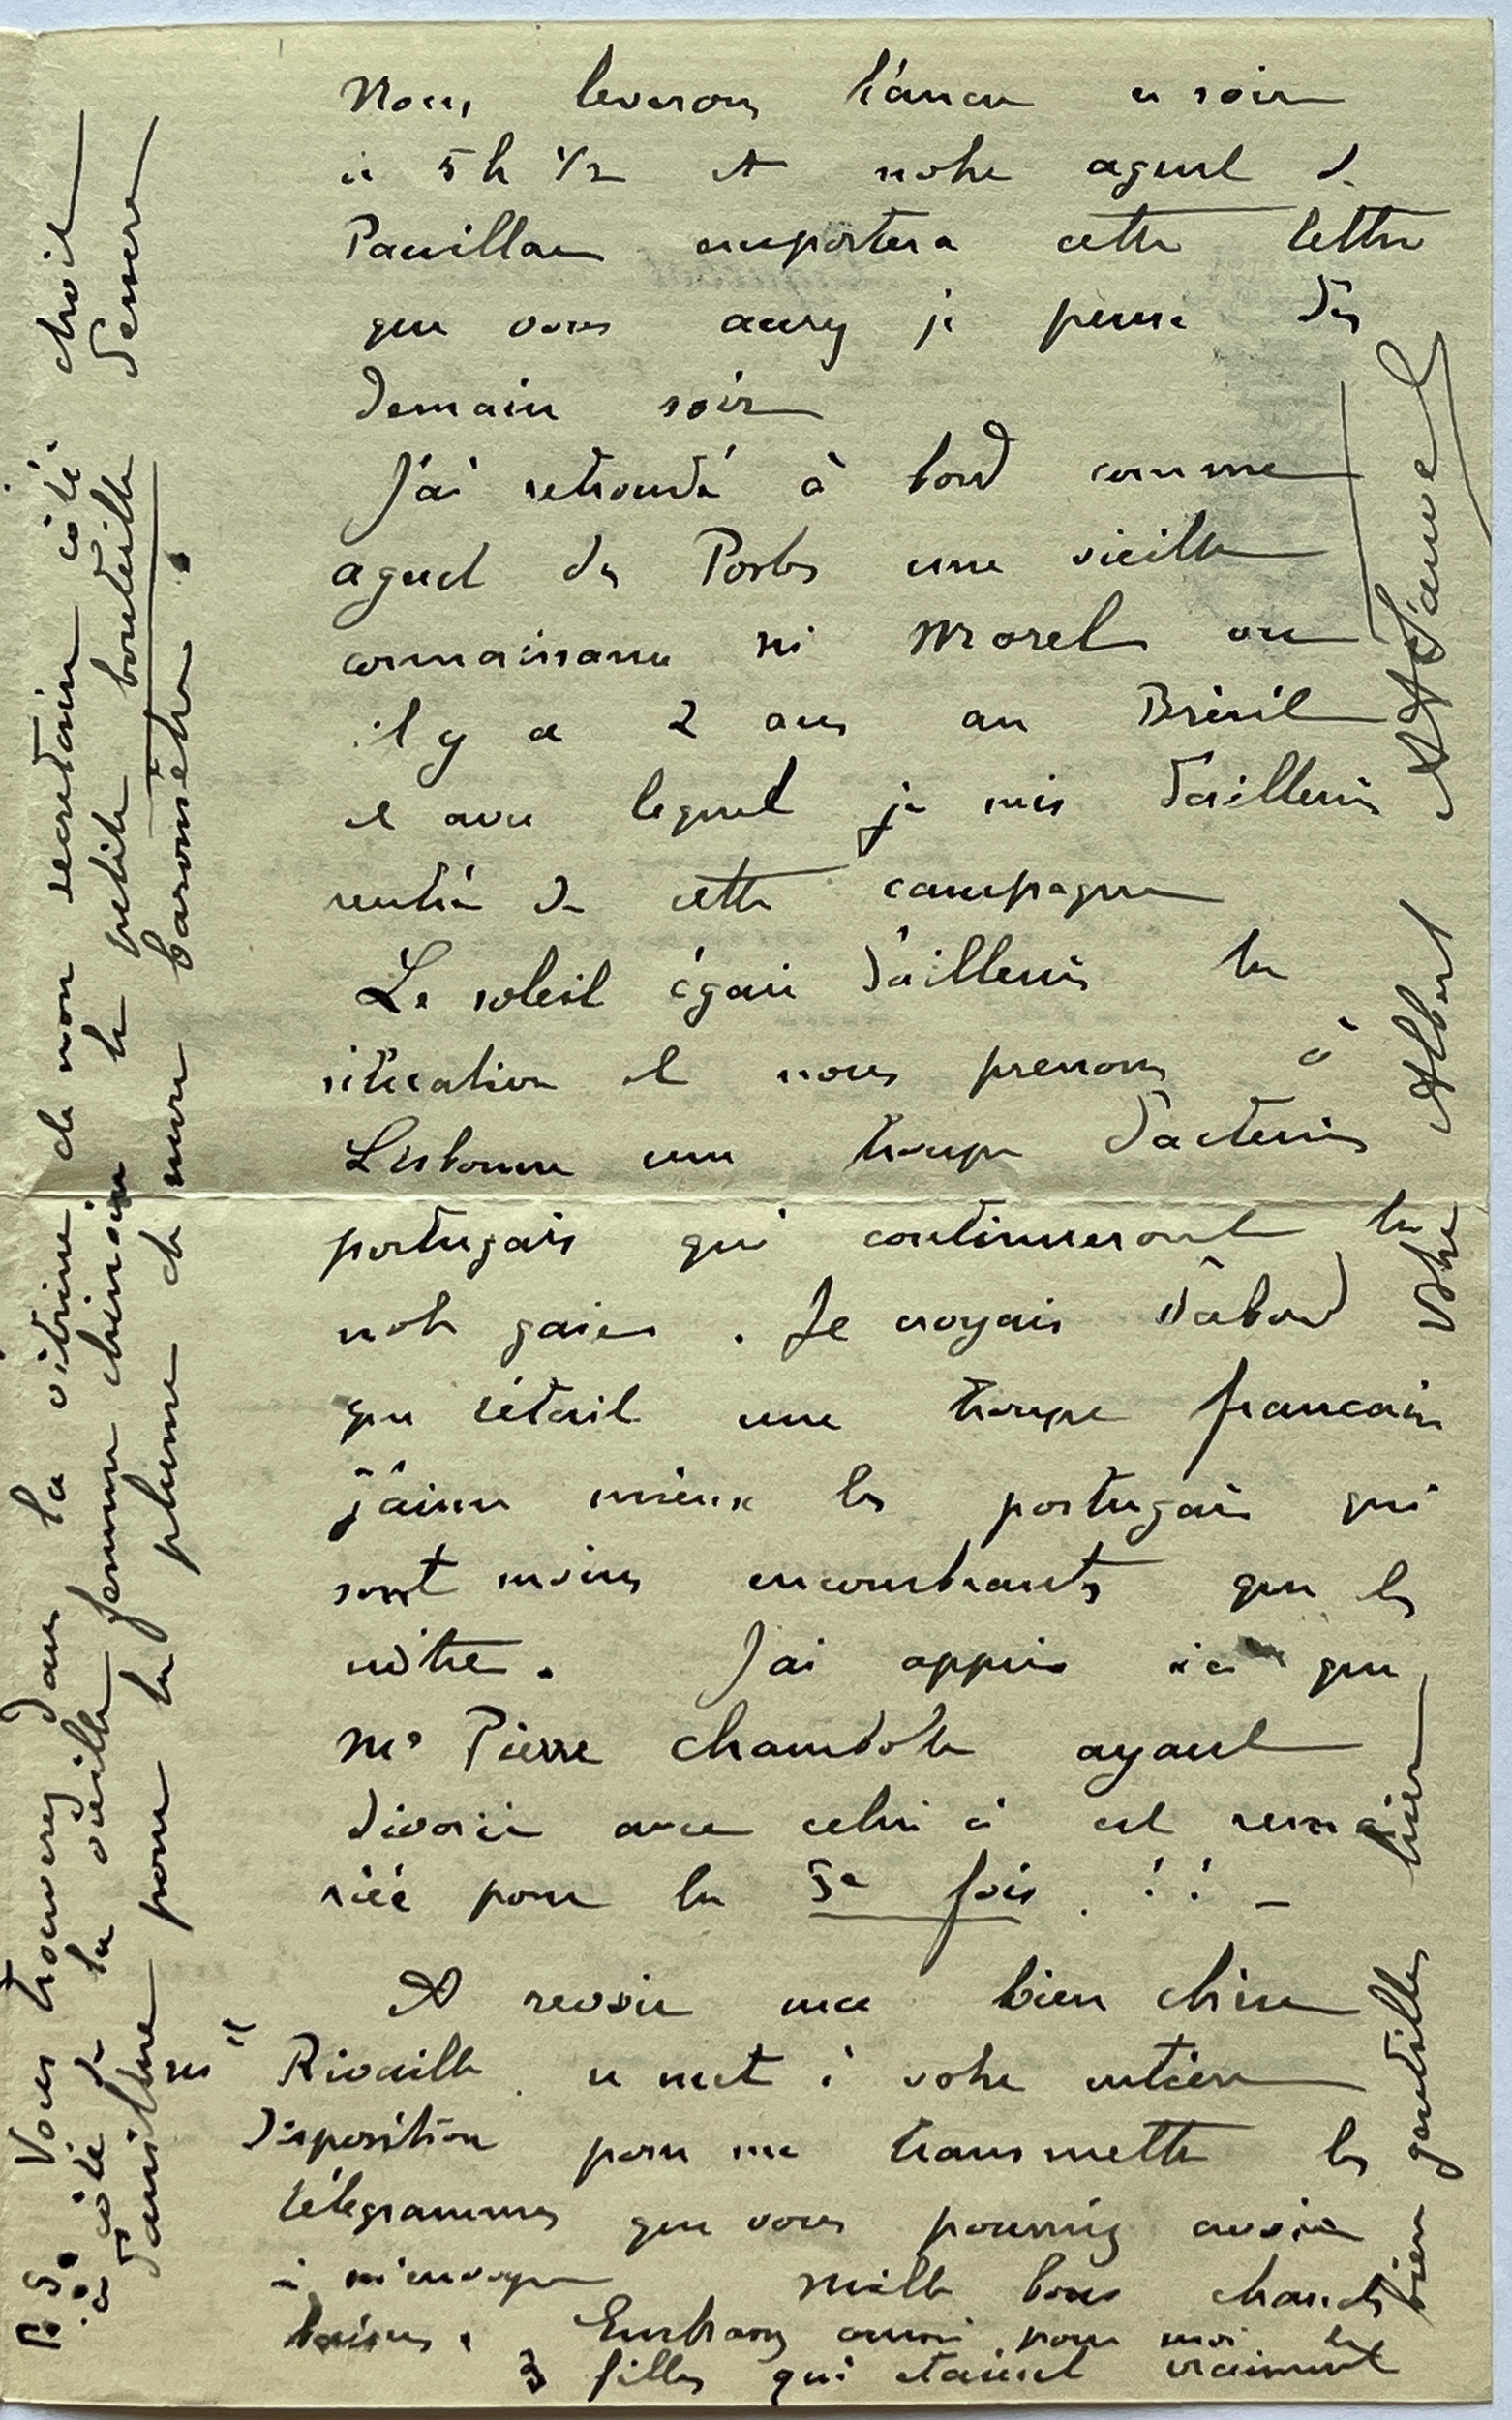 Nous leverons l'ancre ce soir
à 5 h 1/2 et notre agent de
Pauillac emportera cette lettre
que vous aurez je pense dès
demain soir
J'ai retrouvé à bord comme
agent des Postes une vieille
connaissance Mr Morel vu
il y a 2 ans au Brésil
et avec lequel je suis d'ailleurs
rentré de cette campagne
Le soleil égaie d'ailleurs la
situation et nous prenons à
Lisbonne une troupe d'acteurs
portugais qui continueront la
note gaie. Je croyais d'abord
que c'était une troupe francaise
j'aime mieux les portugais qui
sont moins encombrants que les
nôtres. J'ai appris ici que
Me Pierre Chambole ayant
divorcé avec celui ci est rema
riée pour la 3e fois. !! –
A revoir ma bien chère
Rivaille se met à votre entière
disposition pour me transmettre les
télégrammes que vous pourriez avoir
à m'envoyer Mille bons chauds
baisers. Embrassez aussi pour moi les
3 filles qui étaient vraiment
bien gentilles hier
Votre Albert
P.S. Vous trouverez dans la vitrine de mon secrétaire côté droit
à côté de la vieille femme chinoise la petite bouteille d'encre
d'aniline pour la plume de mon baromètre.